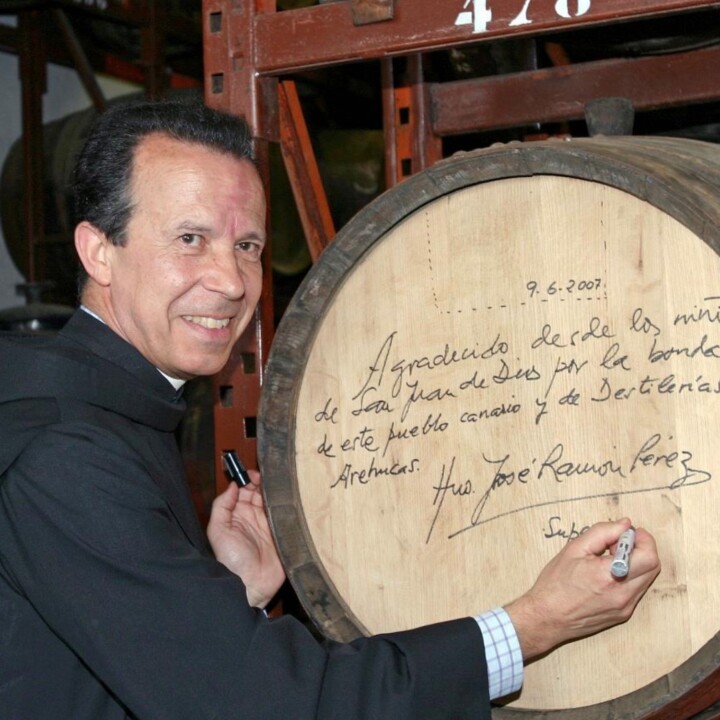 478
9.6.2007.
Agradecido desde los niñ
de San Juan de Dios por la bonda
de este pueblo canario y de Destilerías
Arehucas.
Hno. José Ramón Pérez
Supe